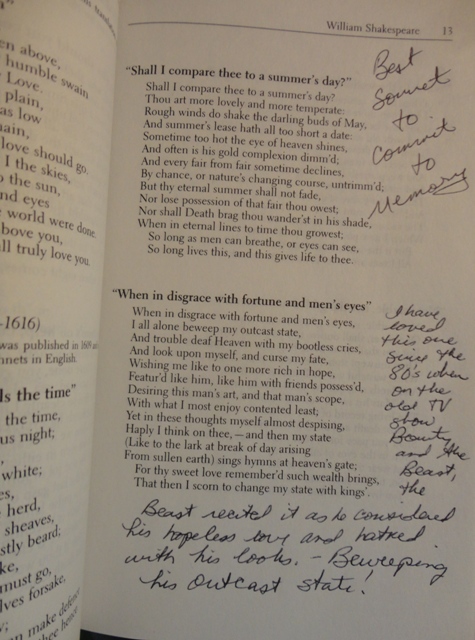 en above,
humble swain
Love.
plain,
as low
ain,
love should go.
I the skies,
o the sun,
nd eyes
world were done
bove you,
ll truly love you.
-1616)
was published in 1609 an
nnets in English.
ls the time"
the time,
us night;
white;
es,
herd,
sheaves,
stly beard;
ke,
must go,
lves forsake,
an make defence
William Shakespeare 13
"Shall I compare thee to a summer's day?"
Shall I compare thee to a summer's day?
Thou art more lovely and more temperate:
Rough winds do shake the darling buds of May,
And summer's lease hath all too short a date:
Sometime too hot the eye of heaven shines,
And often is his gold complexion dimm'd;
And every fair from fair sometime declines,
By chance, or nature's changing course, untrimm'd;
But thy eternal summer shall not fade,
Nor lose possession of that fair thou owest;
Nor shall Death brag thou wander'st in his shade,
When in eternal lines to time thou growest;
So long as men can breathe, or eyes can see,
So long lives this, and this gives life to thee.
Best
Sonnet
to
Commit
to
Memory
"When in disgrace with fortune and men's eyes"
When in disgrace with fortune and men's eyes,
I all alone beweep my outcast state,
And trouble deaf Heaven with my bootless cries,
And look upon myself, and curse my fate,
Wishing me like to one more rich in hope,
Featur'd like him, like him with friends possess'd,
Desiring this man's art, and that man's scope,
With what I most enjoy contented least;
Yet in these thoughts myself almost despising,
Haply I think on thee,—and then my state
(Like to the lark at break of day arising
From sullen earth) sings hymns at heaven's gate;
For thy sweet love remember'd such wealth brings,
That then I scorn to change my state with kings'.
I have
loved
this one
since the
80's when
on the
old TV
show
Beauty
and the
Beast,
the
Beast recited it as he considered
his hopeless love and hatred
with his looks. - Beweeping
his outcast state!